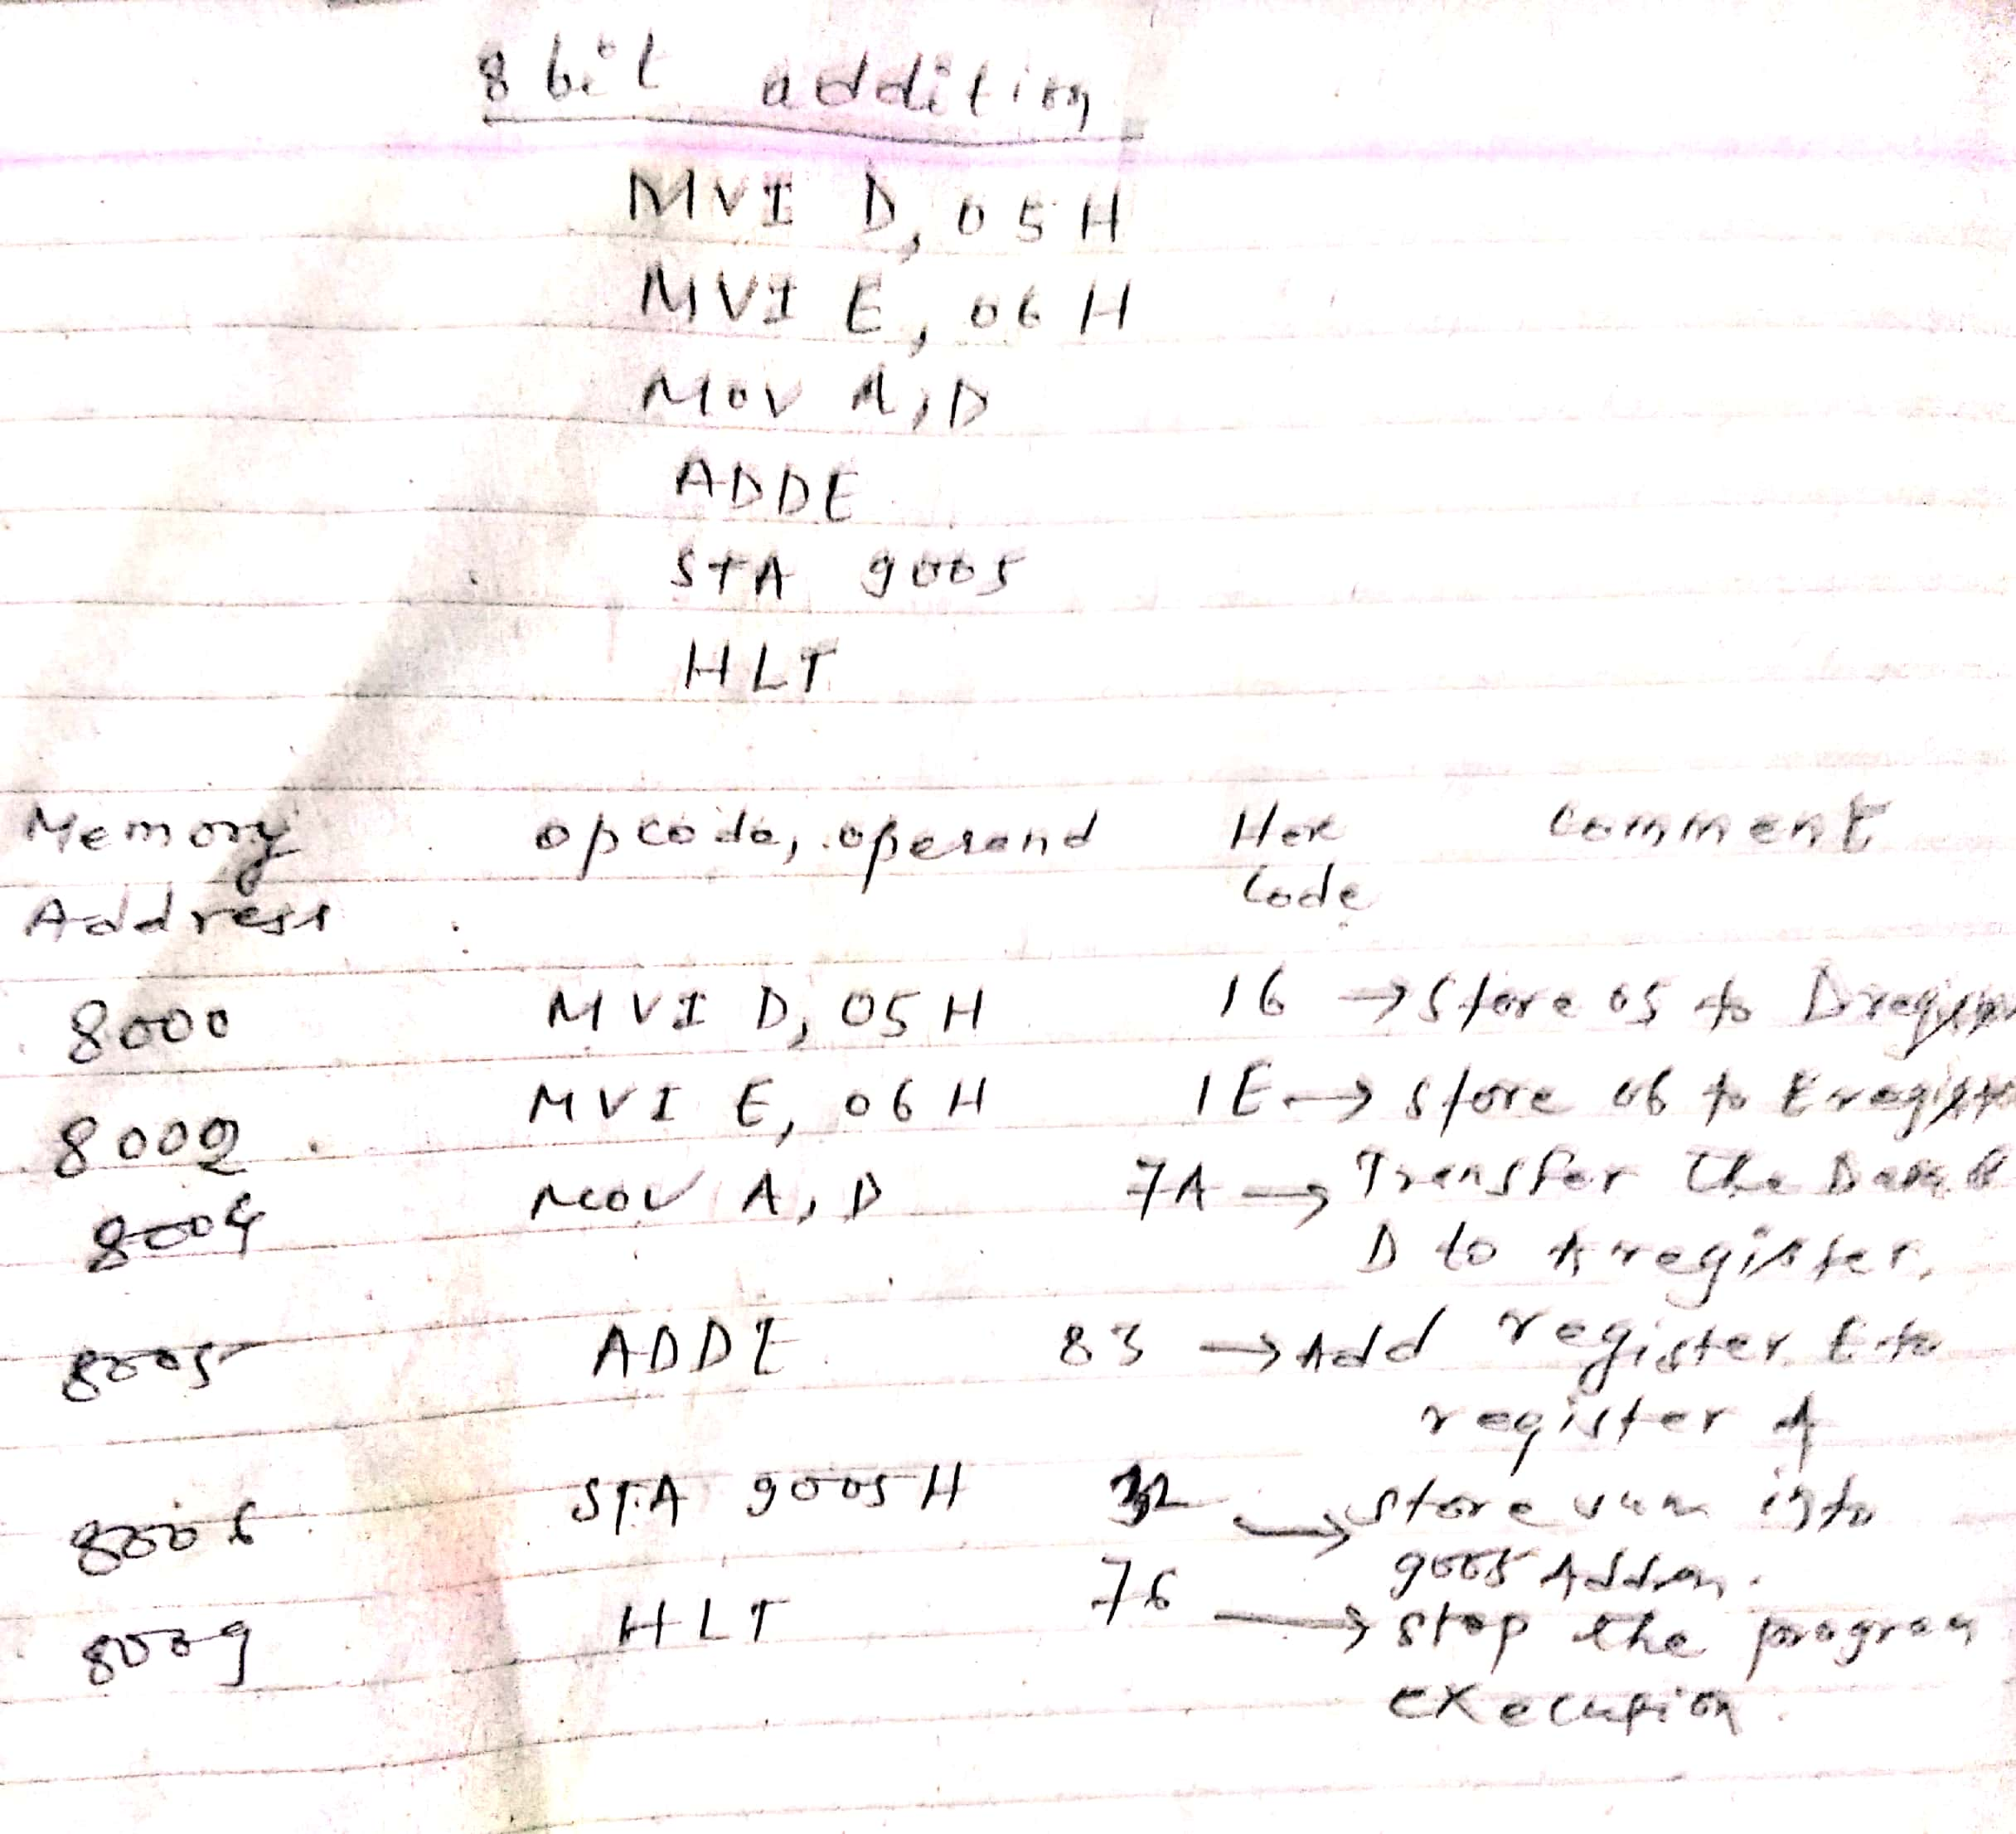 8 bit addition
MVI D, 05H
MVI E, 06 H
MOV A, D
ADDE
STA 9005
HLT
Memory Address opcode, operand Hex Code Comment
8000 MVI D, 05 H 16 → Store 05 to D register
8002 MVI E, 06 H 1E → store 06 to E register
8004 MOV A, D 7A → Transfer the
D to A register.
8005 ADDE 83 → Add register E to
register A
8006 STA 9005 H 32 → store sum into
9005
8009 HLT 76 → stop the program
execution.